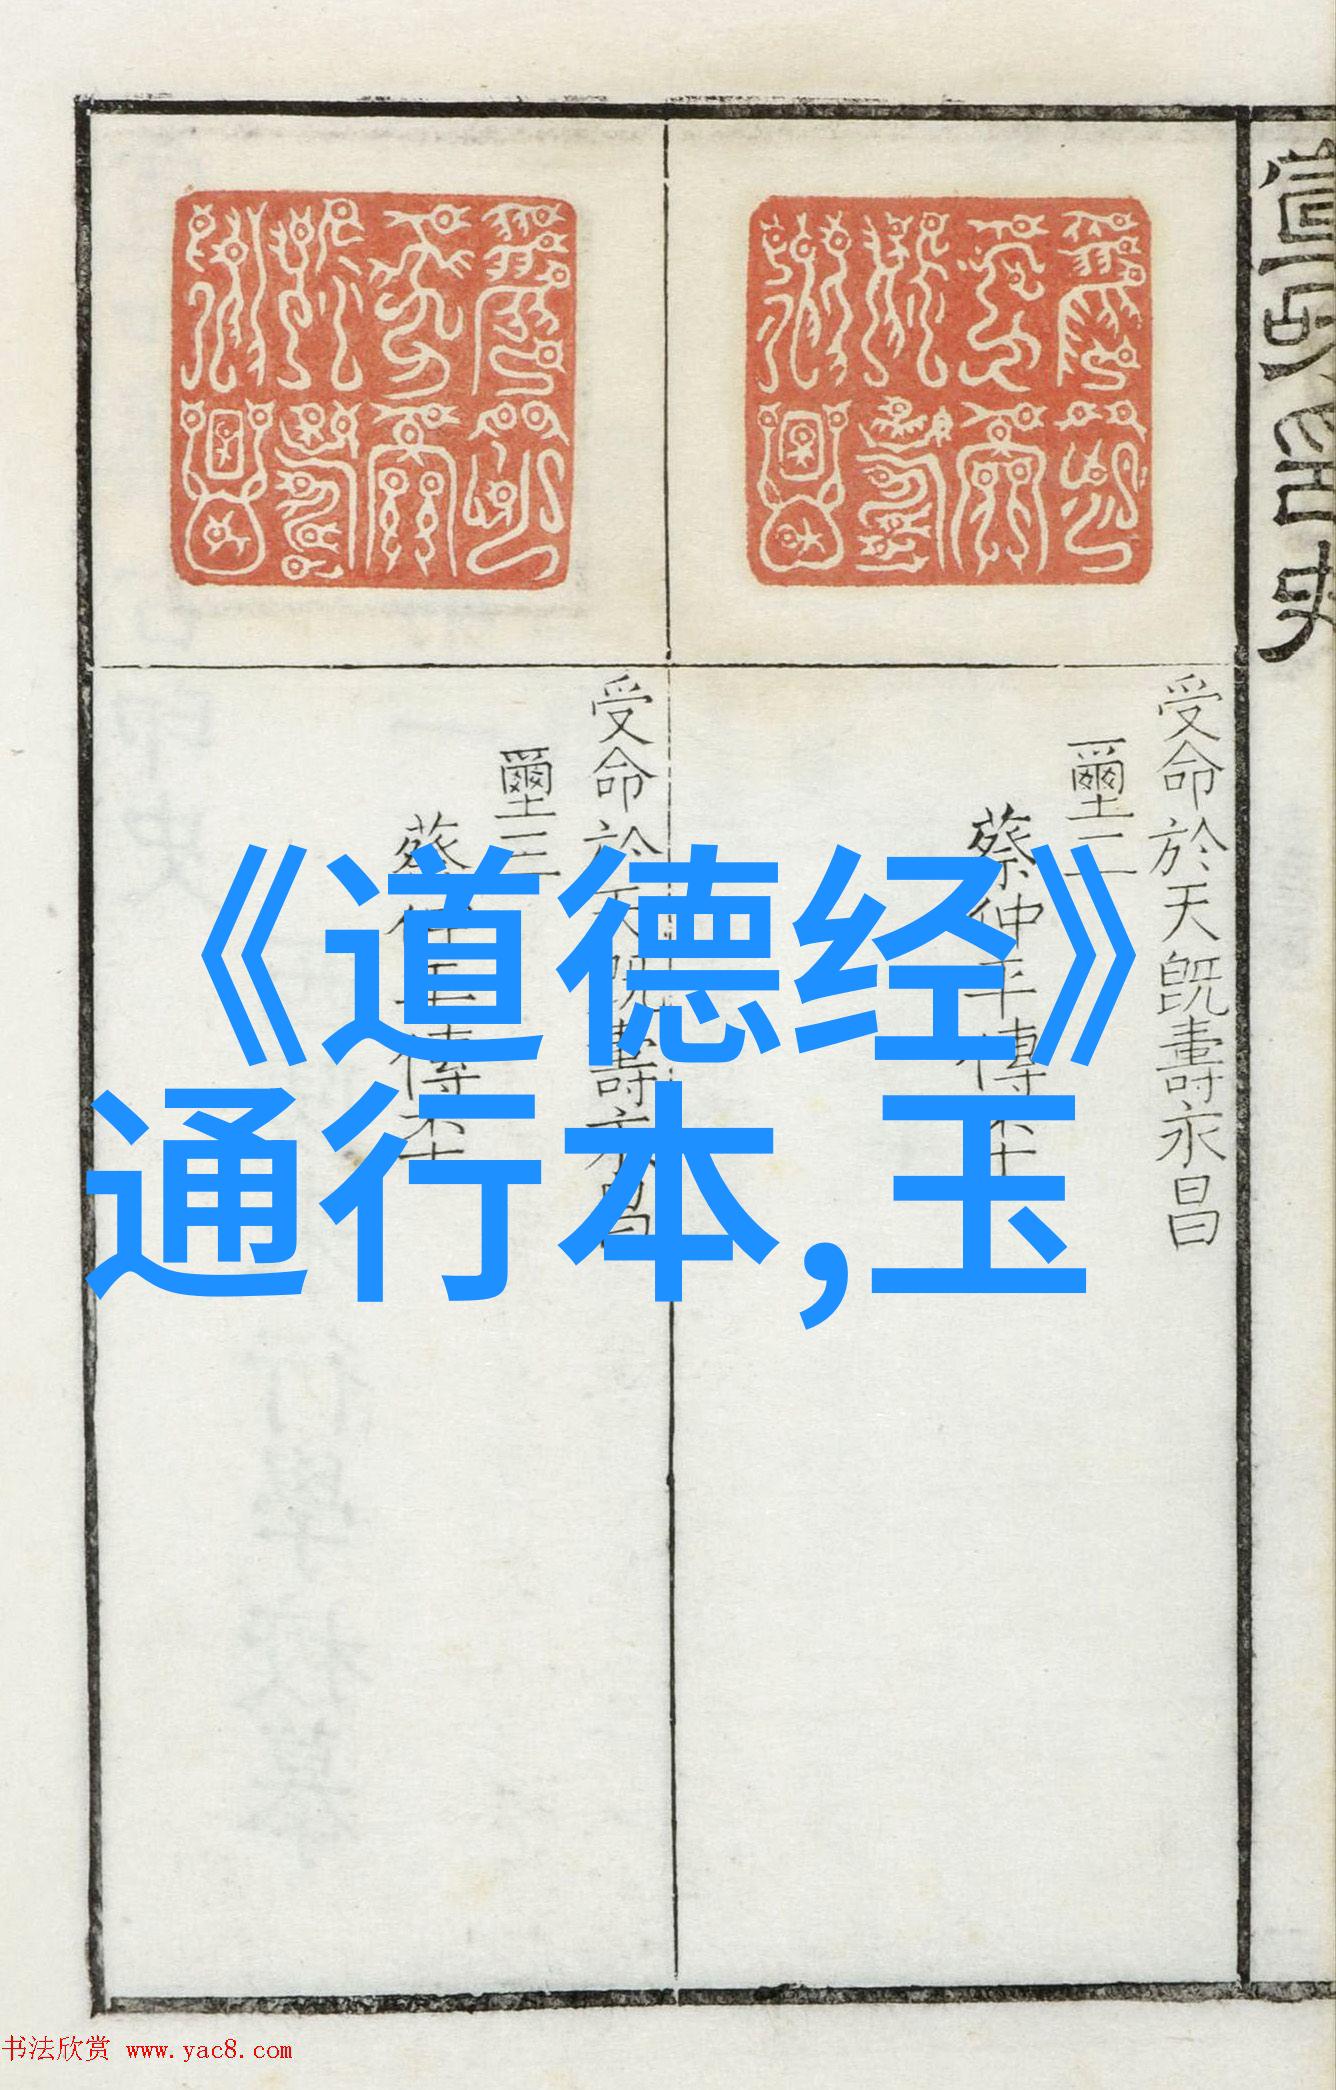 《道德经》
通行本,玉
受命於天旣壽永昌
壐二
蔡仲平傳本
受命於天旣壽永昌
壐三
蔡仲平傳本
书法欣赏 www.yac8.com